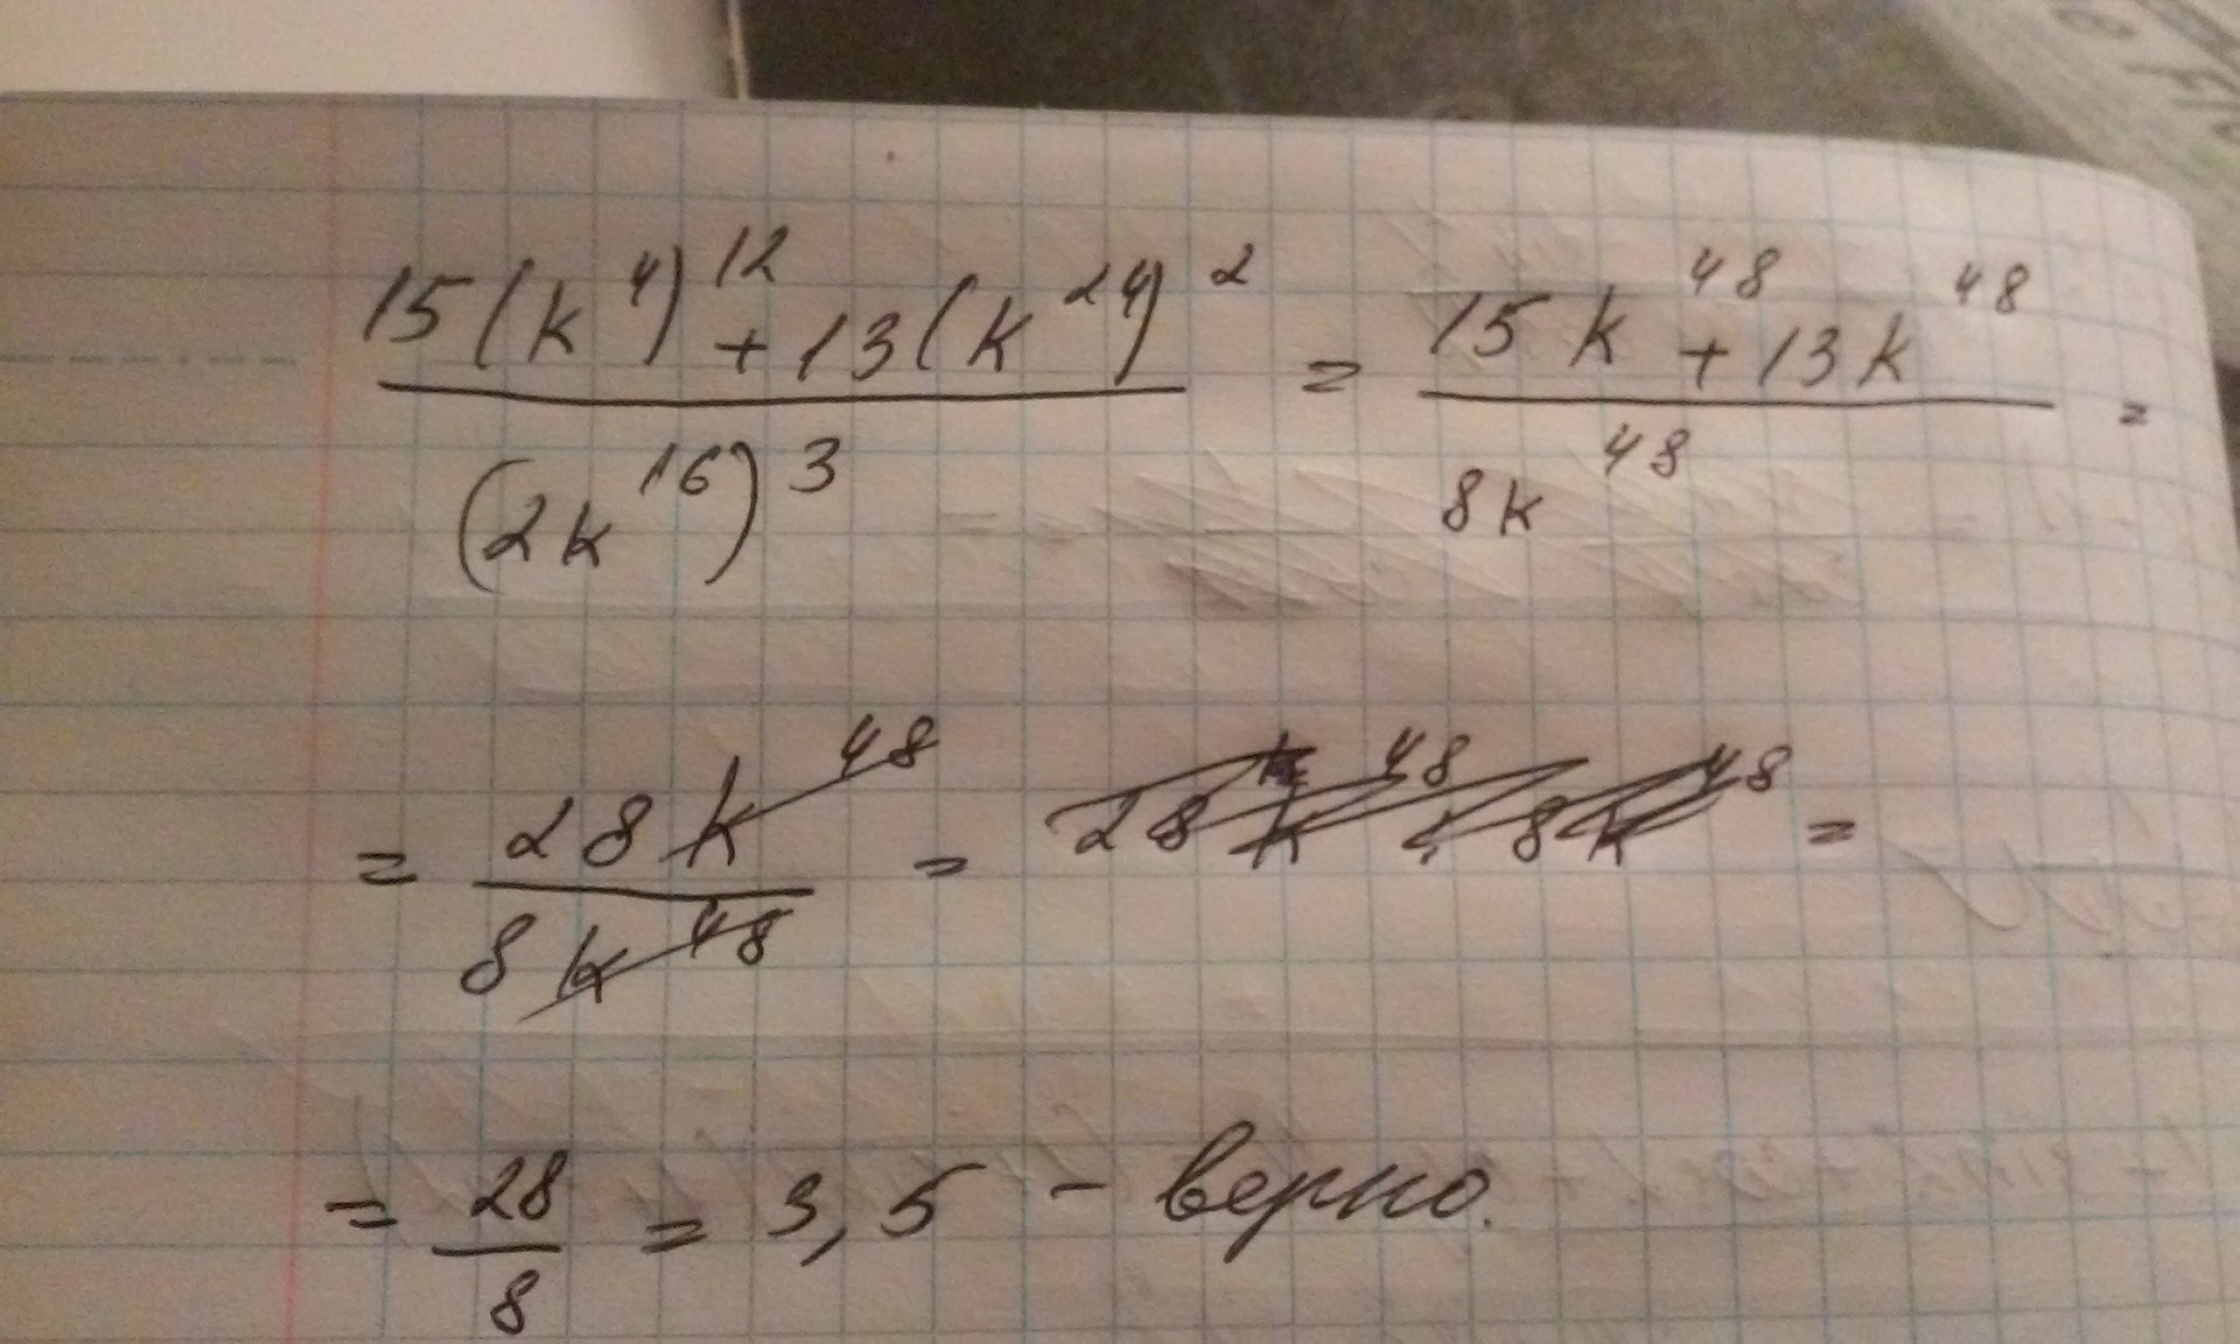 15(k⁴)¹² + 13(k²⁴)² / (2k¹⁶)³ = 15k⁴⁸ + 13k⁴⁸ / 8k⁴⁸ =
= 28k⁴⁸ / 8k⁴⁸ = 28k⁴⁸ : 8k⁴⁸ =
= 28 / 8 = 3,5 - верно.